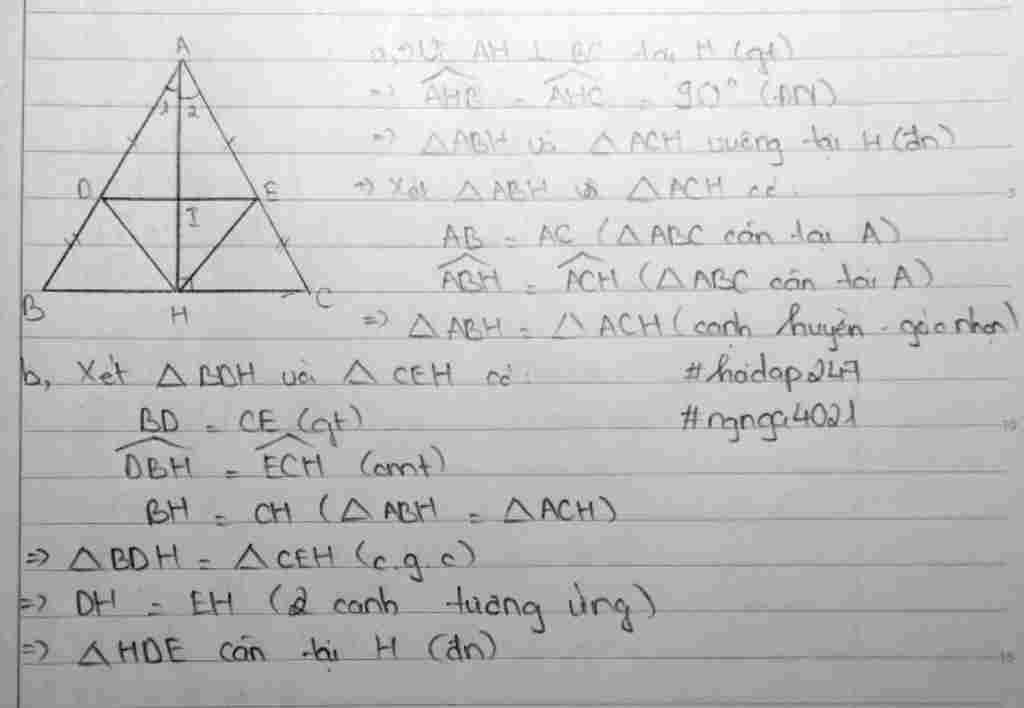 A
1 2
D E
I
B H C
a, Vì AH ⊥ BC tại H (gt)
=> AHB = AHC = 90° (ĐN)
=> △ABH và △ACH vuông tại H (đn)
=> Xét △ABH và △ACH có:
AB = AC (△ABC cân tại A)
ABH = ACH (△ABC cân tại A)
=> △ABH = △ACH (cạnh huyền - góc nhọn)
b, Xét △BDH và △CEH có:
#hoidap247
BD = CE (gt)
#ngnga4021
DBH = ECH (cmt)
BH = CH (△ABH = △ACH)
=> △BDH = △CEH (c.g.c)
=> DH = EH (2 cạnh tương ứng)
=> △HDE cân tại H (đn)
5
10
15